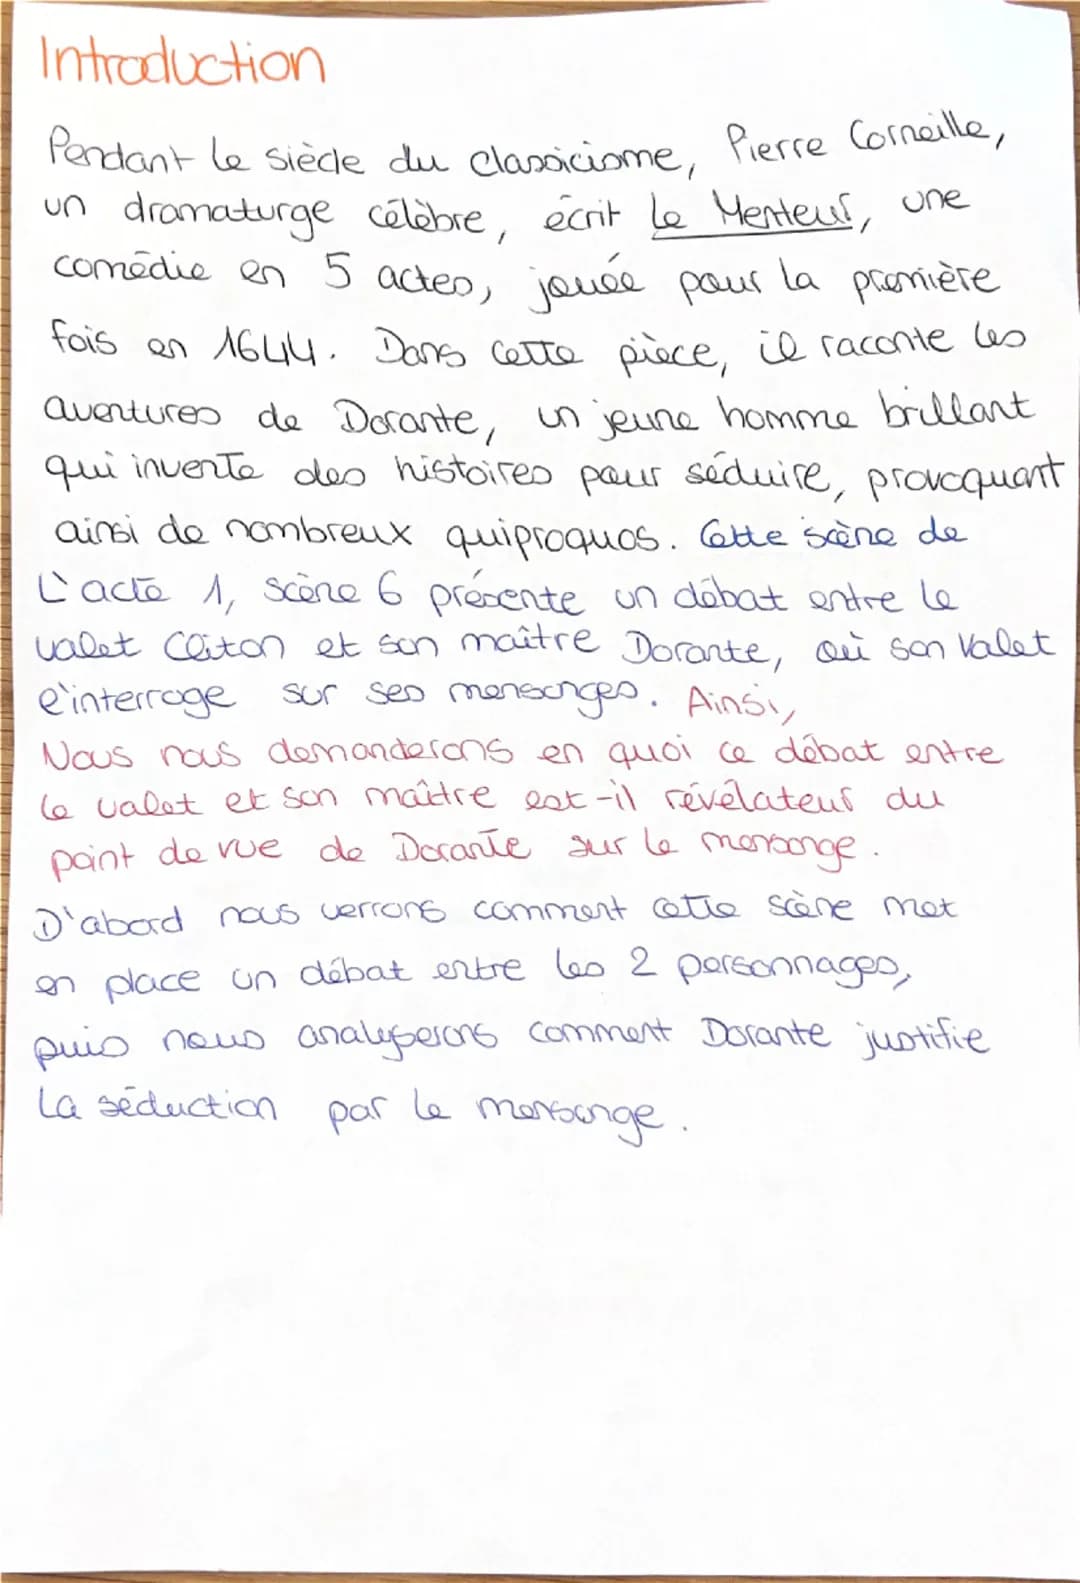 Introduction
Pendant le siècle du classicisme, Pierre Corneille,
un dramaturge célèbre, écrit Le Menteur, une
comédie en 5 actes, jouée pour la première
fois en 1644. Dans cette pièce, il raconte les
aventures de Dorante, un jeune homme brillant
qui invente des histoires pour séduire, provoquant
ainsi de nombreux quiproquos. Cette scène de
L'acte 1, scène 6 présente un débat entre le
valet Cliton et son maître Dorante, où son valet
l'interroge sur ses mensonges. Ainsi,
Nous nous demanderons en quoi ce débat entre
le valet et son maître est-il révélateur du
point de vue de Dorante sur le mensonge.
D'abord nous verrons comment cette scène met
en place un débat entre les 2 personnages,
puis nous analyserons comment Dorante justifie
La séduction par le mensonge.